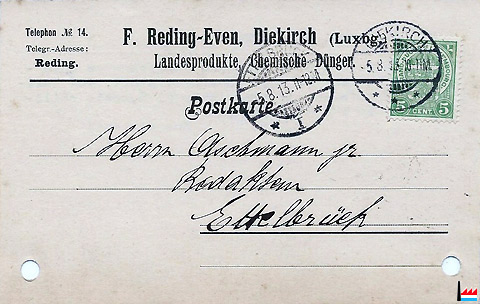 Telephon № 14.
Telegr.-Adresse:
Reding.
F. Reding-Even, Diekirch (Luxbg
Landesprodukte, Chemische Dünger.
DIEKIRCH
5.8.13.
5.8.13.11-12
I
5 5
CENT.
Postkarte
Herrn Aschmann jr
Ettelbrück